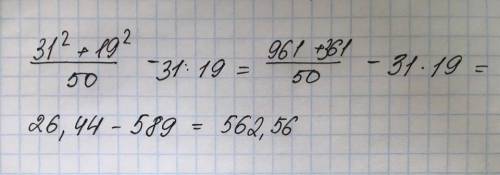 (31² + 19²)/50 - 31 · 19 = (961 + 361)/50 - 31 · 19 =
26,44 - 589 = 562,56